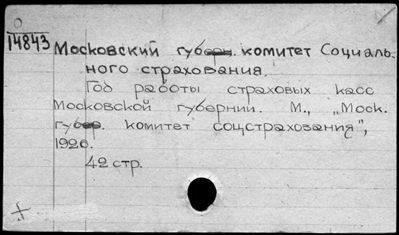 14843
Московский губерн. комитет Социаль-
ного страхования.
Год работы страховых касс
Московской губернии. М., „Моск.
губер. комитет соцстрахования",
1926.
42 стр.